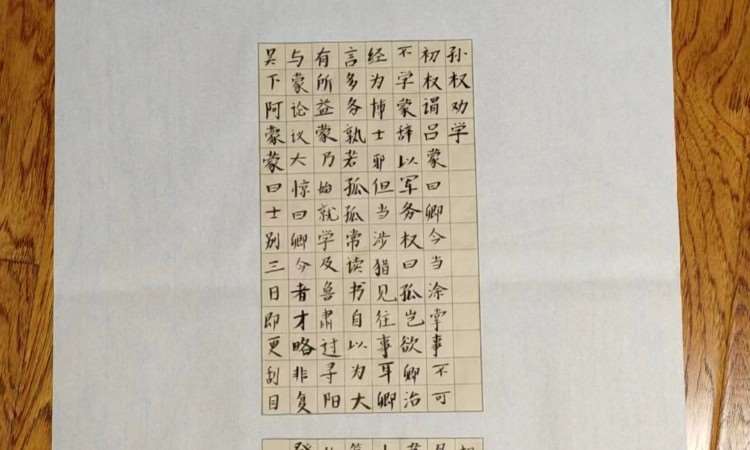 孙权劝学
初权谓吕蒙曰卿今当涂掌事不可
不学蒙辞以军务权曰孤岂欲卿治
经为博士邪但当涉猎见往事耳卿
言多务孰若孤孤常读书自以为大
有所益蒙乃始就学及鲁肃过寻阳
与蒙论议大惊曰卿今者才略非复
吴下阿蒙蒙曰士别三日即更刮目